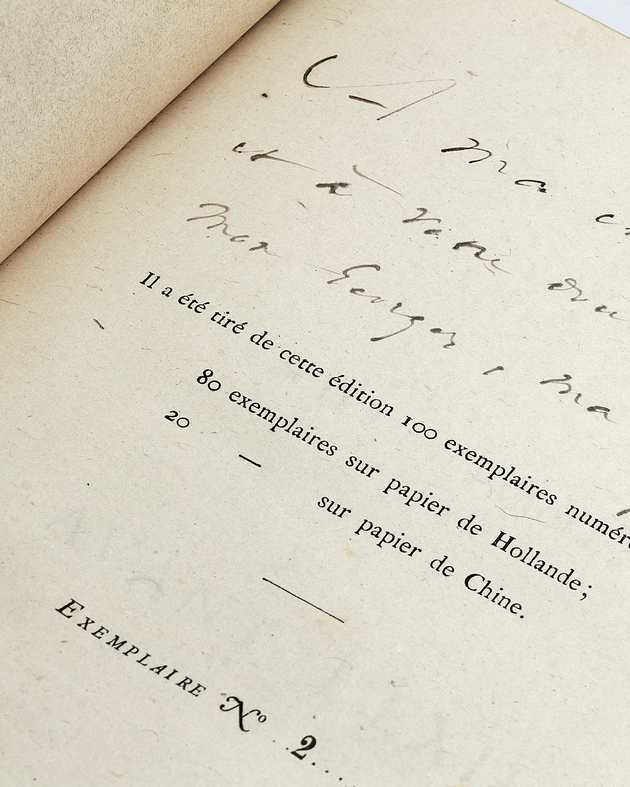 A ma
et à votre
mon Georges, ma
Il a été tiré de cette édition 100 exemplaires numéro
80 exemplaires sur papier de Hollande;
20 — sur papier de Chine.
EXEMPLAIRE Nº 2....